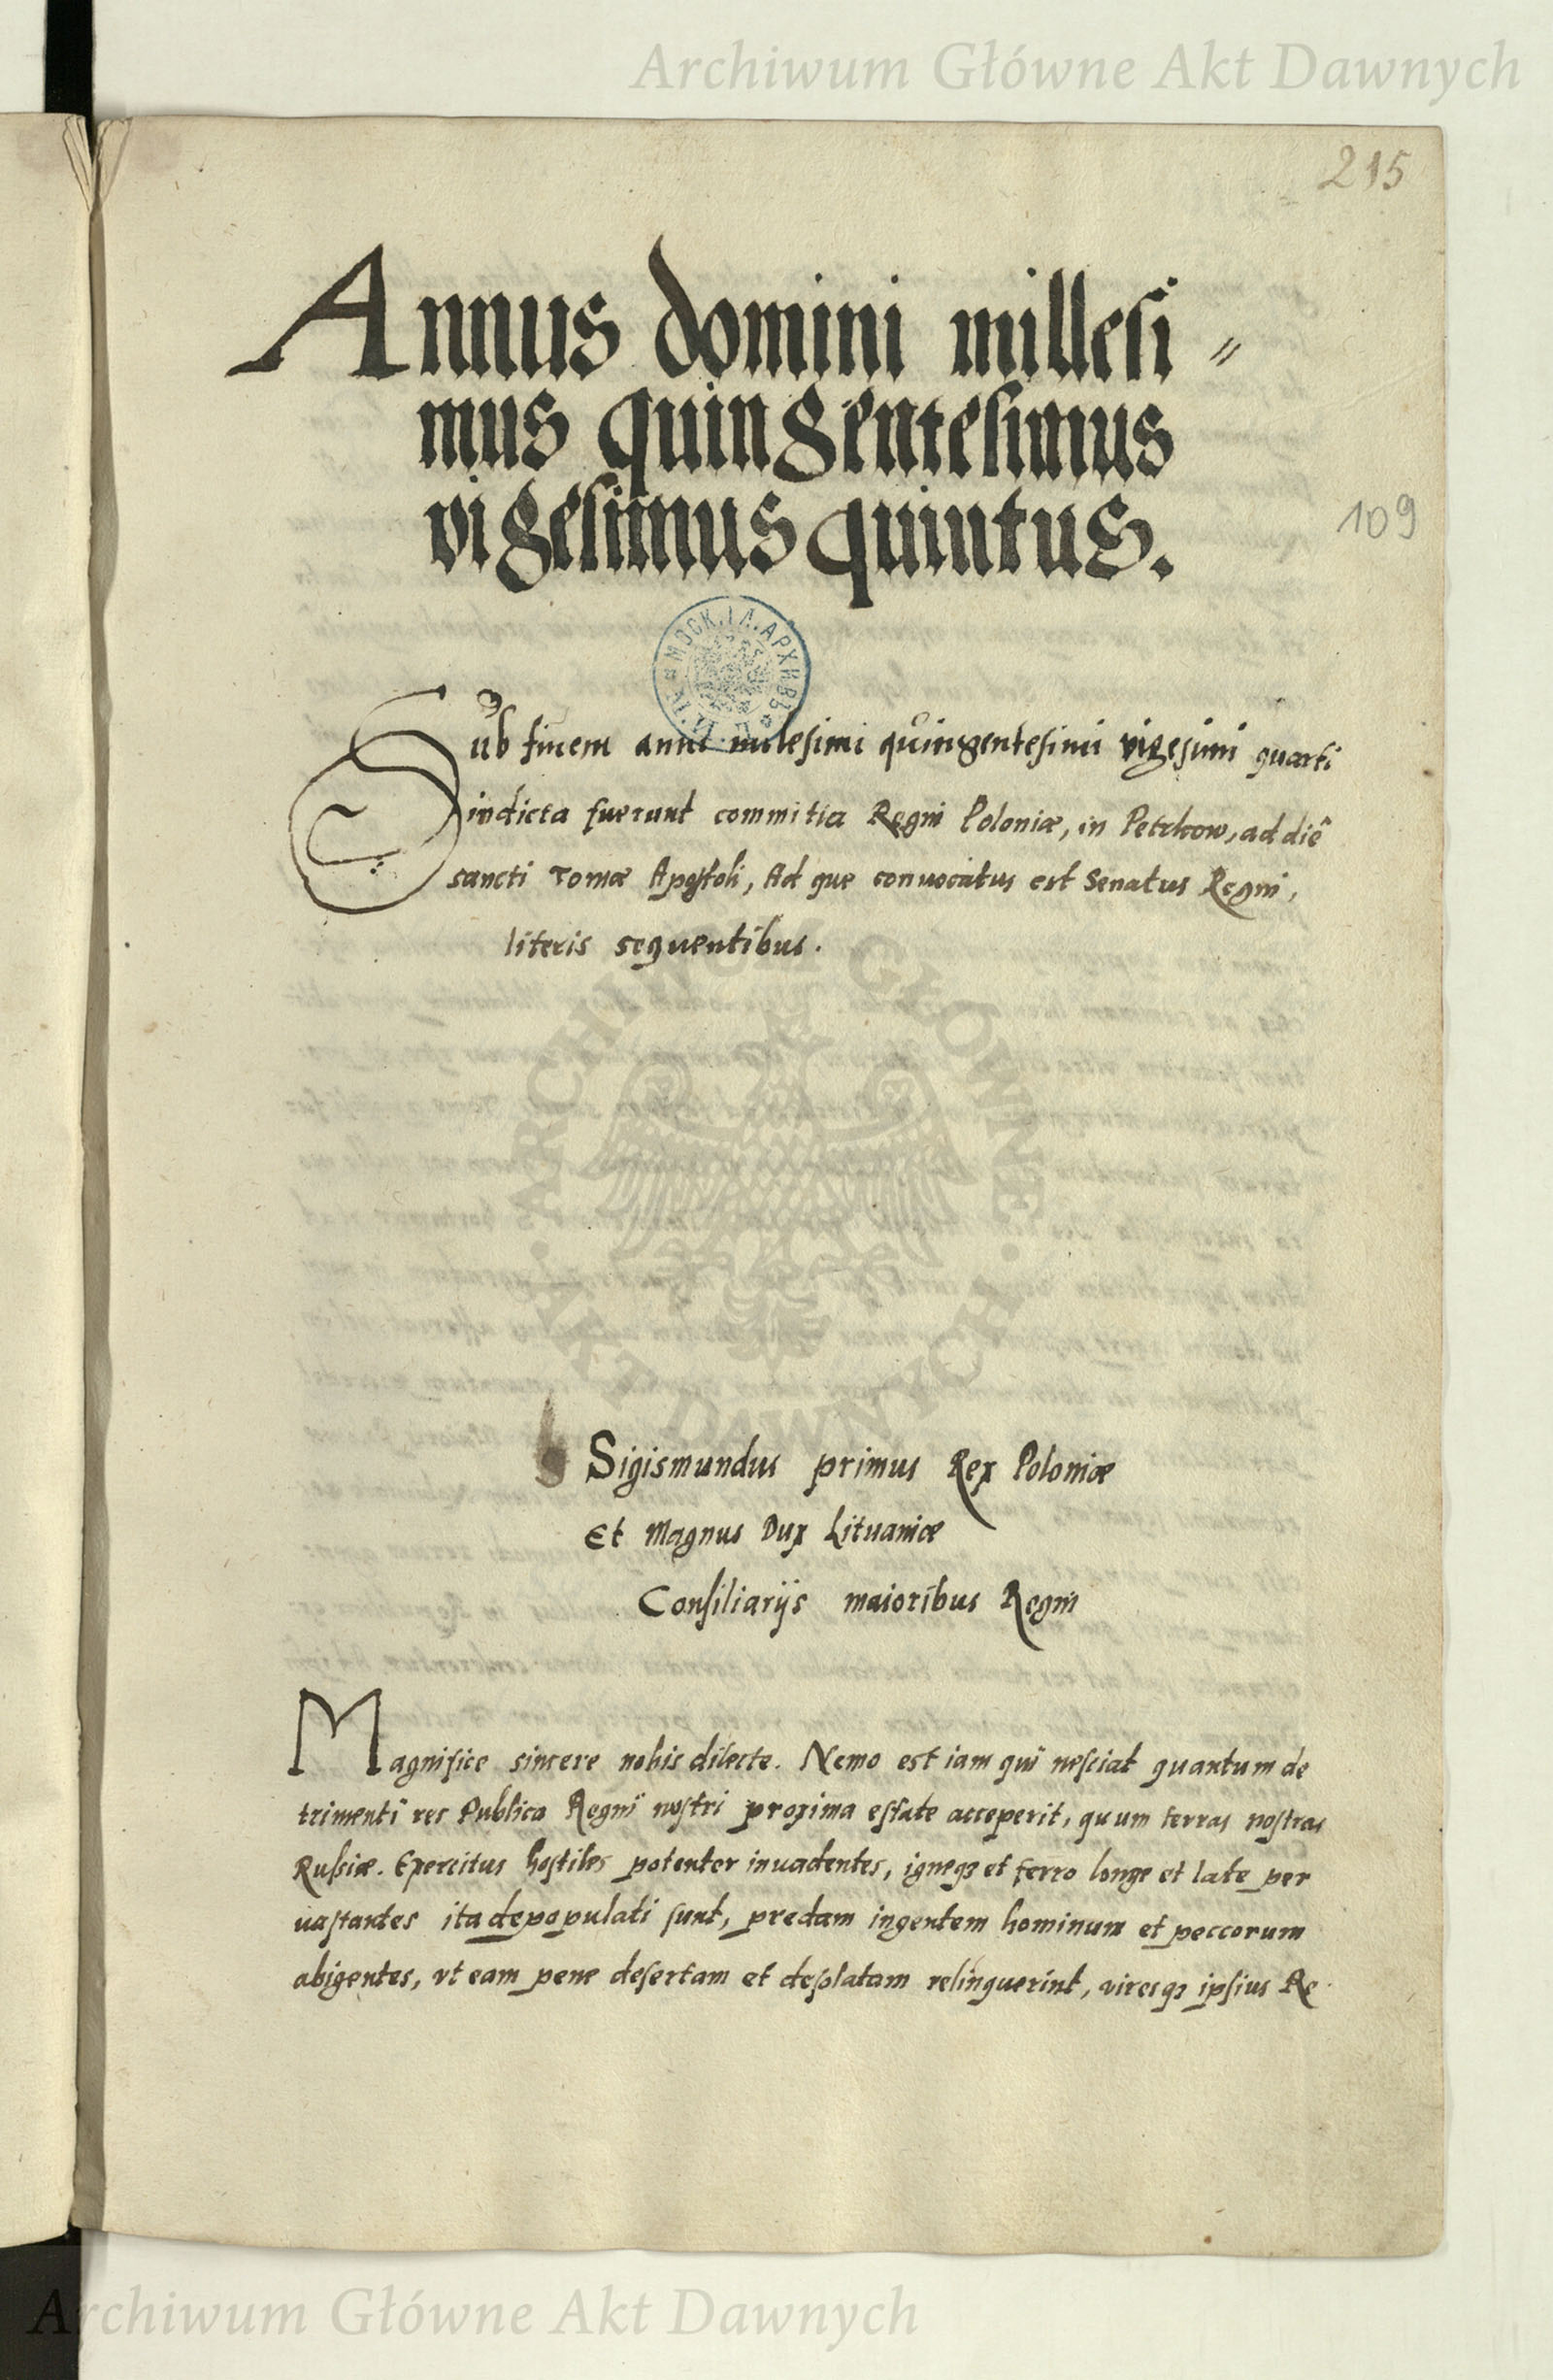 Archiwum Główne Akt Dawnych
215
Annus domini millesi〃
mus quingentesimus
vigesimus quintus.
109
МОСК. ГЛ. АРХИВЪ
Sub finem anni milesimi quingentesimi vigesimi quarti
indicta fuerunt commitia Regni Poloniæ, in Petrkow, ad diē
sancti Tomæ Apostoli, Ad que convocatus est Senatus Regni,
literis sequentibus.
ARCHIWUM GŁÓWNE
· AKT DAWNYCH ·
Sigismundus primus Rex Poloniæ
Et Magnus Dux Lituaniæ
Consiliarijs maioribus Regni
Magnifice sincere nobis dilecte. Nemo est iam qui nesciat quantum de
trimenti res Publica Regni nostri proxima estate acceperit, quum terras nostras
Russiæ. Exercitus hostiles potenter invadentes, igneqꝫ et ferro longe et late per
uastantes ita depopulati sunt, predam ingentem hominum et peccorum
abigentes, vt eam pene desertam et desolatam relinquerint, viresqꝫ ipsius Re
Archiwum Główne Akt Dawnych